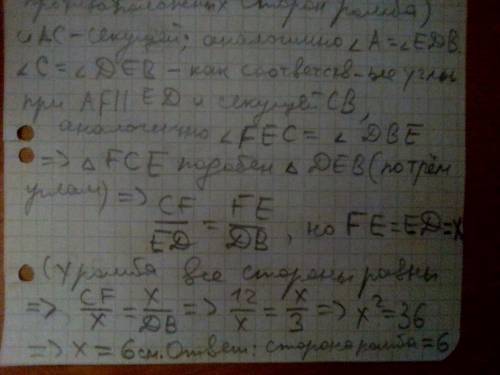 противоположных сторон ромба)
и AC - секущей; аналогично ∠A = ∠EDB.
∠C = ∠DEB - как соответств-ые углы
при AF || ED и секущей CB,
аналогично ∠FEC = ∠DBE
=> △ FCE подобен △ DEB (по трём
углам) => CF/ED = FE/DB, но FE = ED = x
(у ромба все стороны равны
=> CF/x = x/DB => 12/x = x/3 => x² = 36
=> x = 6 см. Ответ: сторона ромба = 6